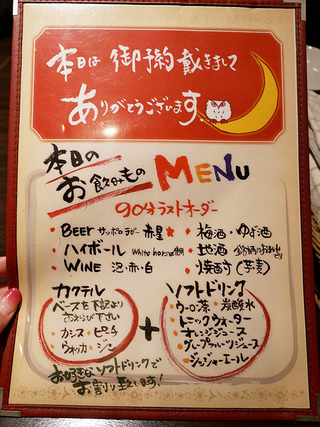 本日は御予約戴きまして
ありがとうございます
本日の
お飲みもの MENU
90分ラストオーダー
・BEER サッポロラガー 赤星★
・ハイボール White horse
・WINE 泡・赤・白
・梅酒・ゆず酒
・地酒
・焼酎 (芋・麦)
カクテル
ベースを下記より
おえらび下さい
・カシス ・ピーチ
・ウォッカ ・ジン
+
ソフトドリンク
・ウーロン茶 ・炭酸水
・トニックウォーター
・オレンジジュース
・グレープフルーツジュース
・ジンジャーエール
お好きなソフトドリンクで
お割り致します!